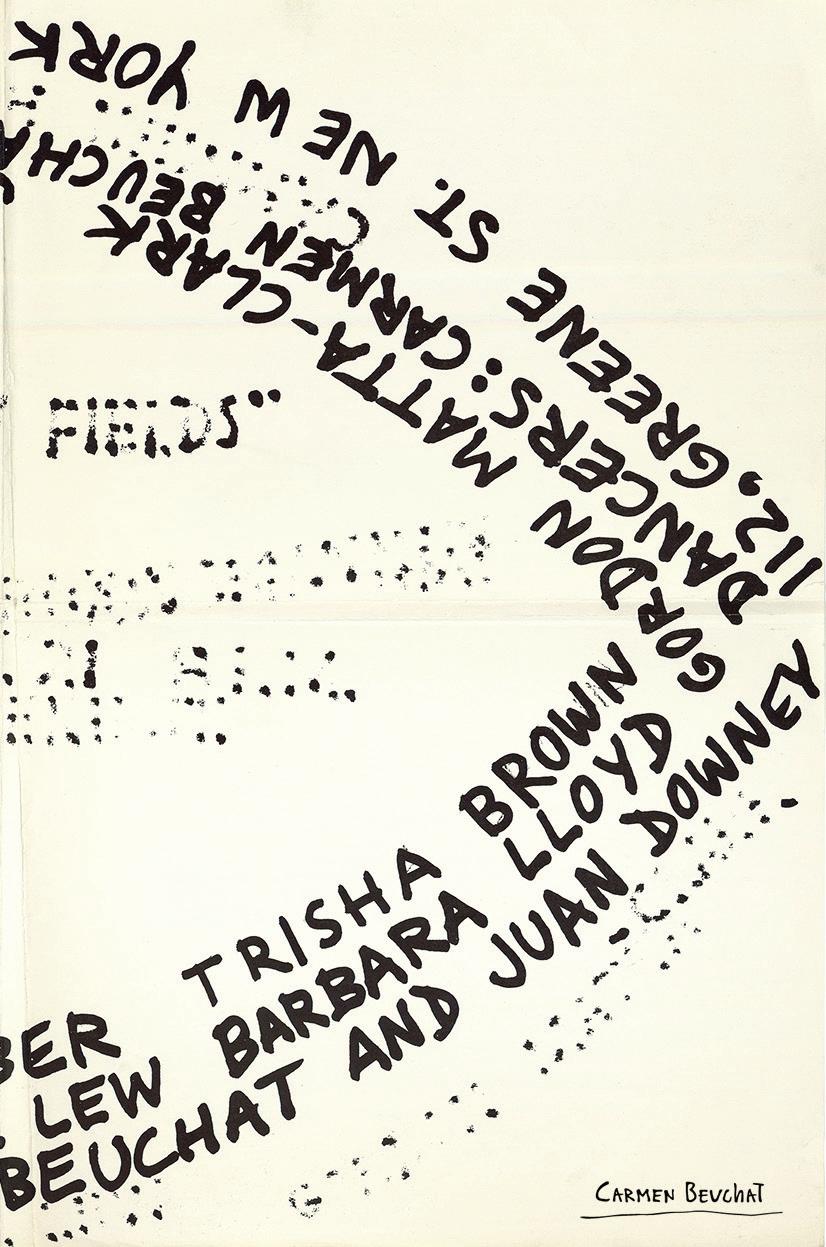 FIELDS"
BER TRISHA BROWN GORDON MATTA-CLARK
LEW BARBARA LLOYD DANCERS: CARMEN BEUCHA
BEUCHAT AND JUAN DOWNEY 112, GREENE ST. NEW YORK
CARMEN BEUCHAT